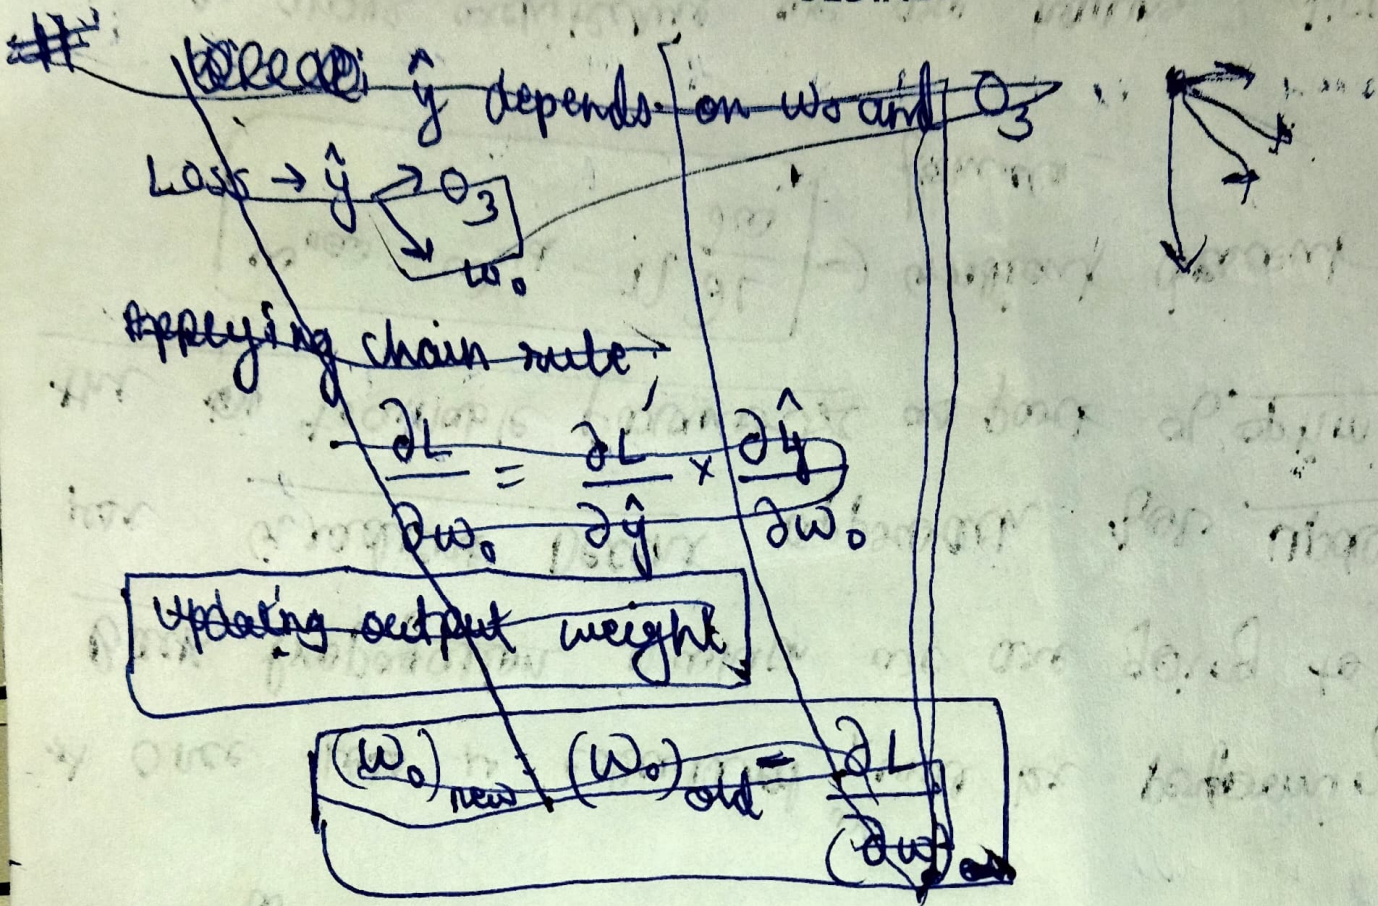 ŷ depends on w₀ and O₃
Loss → ŷ → O₃
→ w₀
Applying chain rule;
∂L/∂w₀ = ∂L/∂ŷ × ∂ŷ/∂w₀
Updating output weight
(W₀)new = (W₀)old - ∂L/(∂w₀)